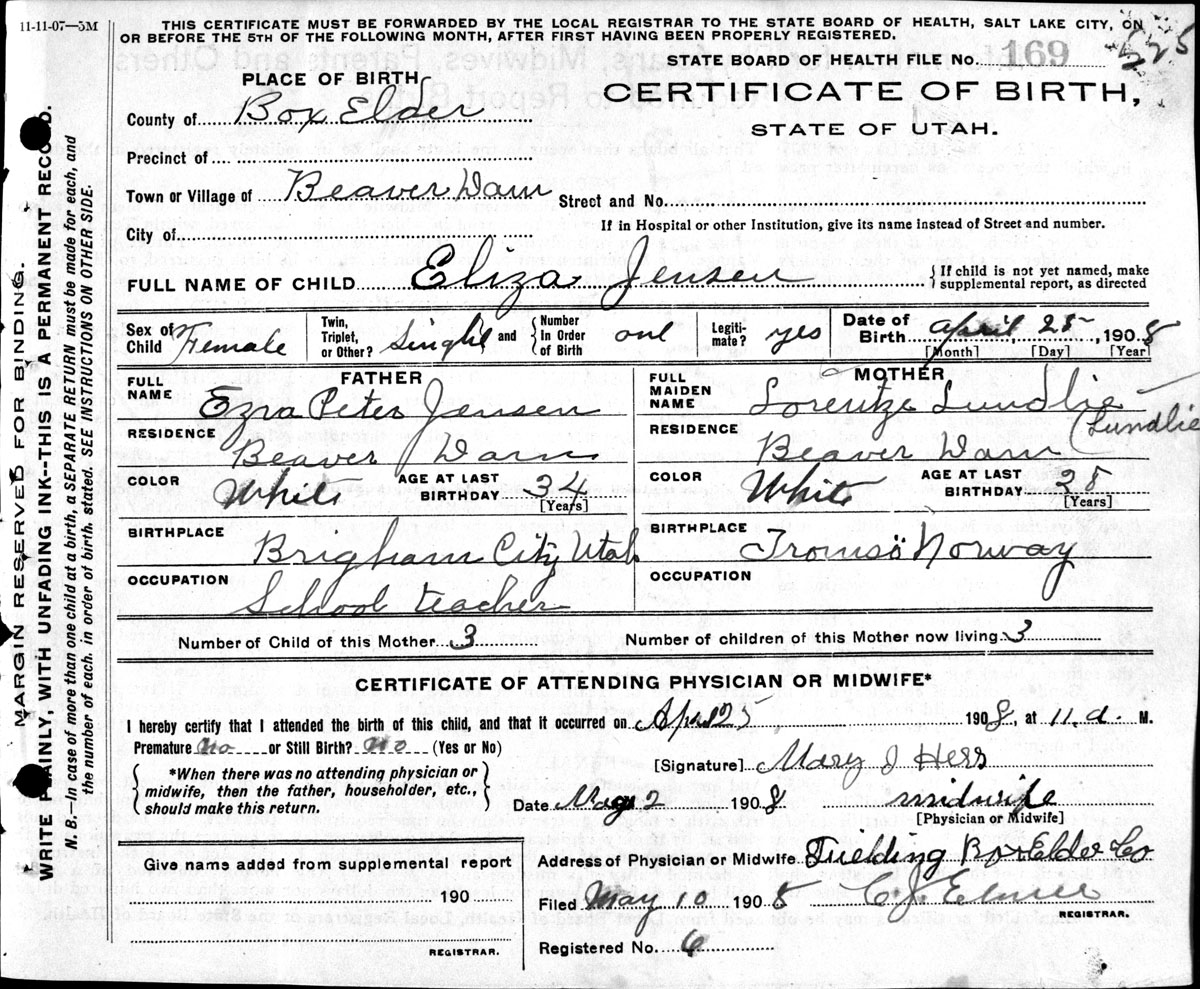 11-11-07—5M
THIS CERTIFICATE MUST BE FORWARDED BY THE LOCAL REGISTRAR TO THE STATE BOARD OF HEALTH, SALT LAKE CITY, ON
OR BEFORE THE 5TH OF THE FOLLOWING MONTH, AFTER FIRST HAVING BEEN PROPERLY REGISTERED.
STATE BOARD OF HEALTH FILE No. 169
325
PLACE OF BIRTH
CERTIFICATE OF BIRTH,
STATE OF UTAH.
County of Box Elder
Precinct of
Town or Village of Beaver Dam
Street and No.
If in Hospital or other Institution, give its name instead of Street and number.
City of
FULL NAME OF CHILD Eliza Jensen
{If child is not yet named, make
supplemental report, as directed
Sex of Child Female
Twin, Triplet, or Other? Singhl and {Number In Order of Birth one
Legitimate? yes
Date of Birth April 25, 1908
[Month] [Day] [Year]
FATHER
FULL NAME Ezra Peter Jensen
RESIDENCE Beaver Dam
COLOR White
AGE AT LAST BIRTHDAY 34
[Years]
BIRTHPLACE Brigham City Utah
OCCUPATION School teacher
MOTHER
FULL MAIDEN NAME Lorentze Lundlie
(Lundlie
RESIDENCE Beaver Dam
COLOR White
AGE AT LAST BIRTHDAY 28
[Years]
BIRTHPLACE Tromsö Norway
OCCUPATION
Number of Child of this Mother 3
Number of children of this Mother now living 3
CERTIFICATE OF ATTENDING PHYSICIAN OR MIDWIFE*
I hereby certify that I attended the birth of this child, and that it occurred on April 25 1908, at 11. a. M.
Premature No or Still Birth? no (Yes or No)
{*When there was no attending physician or
midwife, then the father, householder, etc.,
should make this return.}
[Signature] Mary J Hess
Date May 2 1908
midwife
[Physician or Midwife]
Give name added from supplemental report
190
REGISTRAR.
Address of Physician or Midwife Fielding Box Elder Co
Filed May 10 1908 C. J. Elmer
REGISTRAR.
Registered No. 6
MARGIN RESERVED FOR BINDING.
WRITE PLAINLY, WITH UNFADING INK--THIS IS A PERMANENT RECORD.
N. B.—In case of more than one child at a birth, a SEPARATE RETURN must be made for each, and
the number of each, in order of birth, stated. SEE INSTRUCTIONS ON OTHER SIDE.